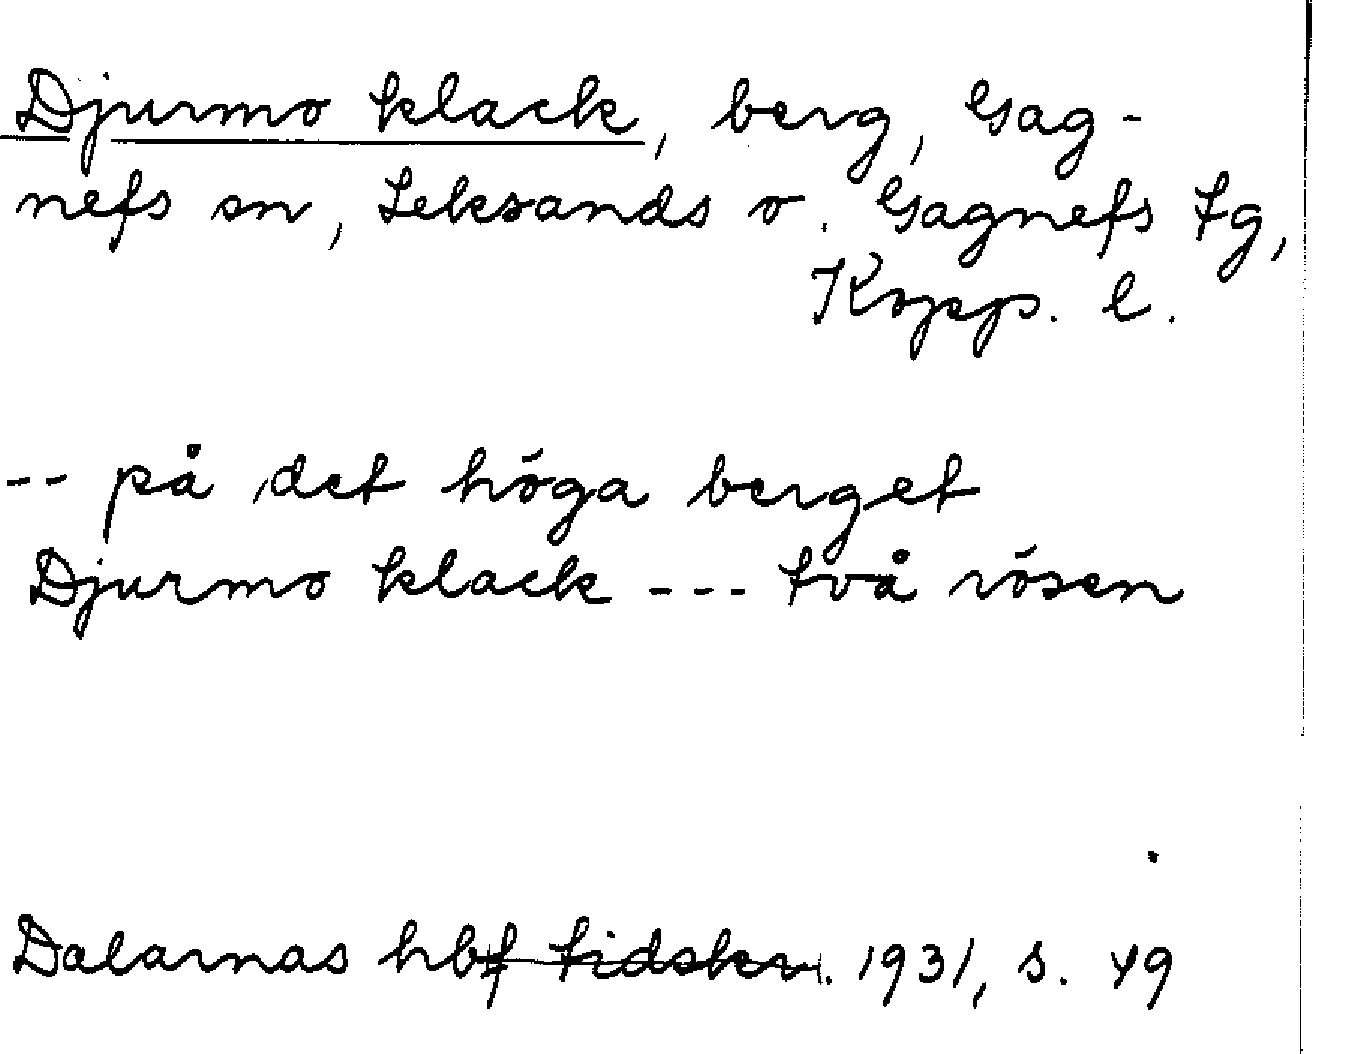 Djurmo klack, berg, Gag-
nefs sn, Leksands o. Gagnefs tg,
Kopp. l.
-- på det höga berget
Djurmo klack --- två rösen
Dalarnas hbf tidskr. 1931, s. 49